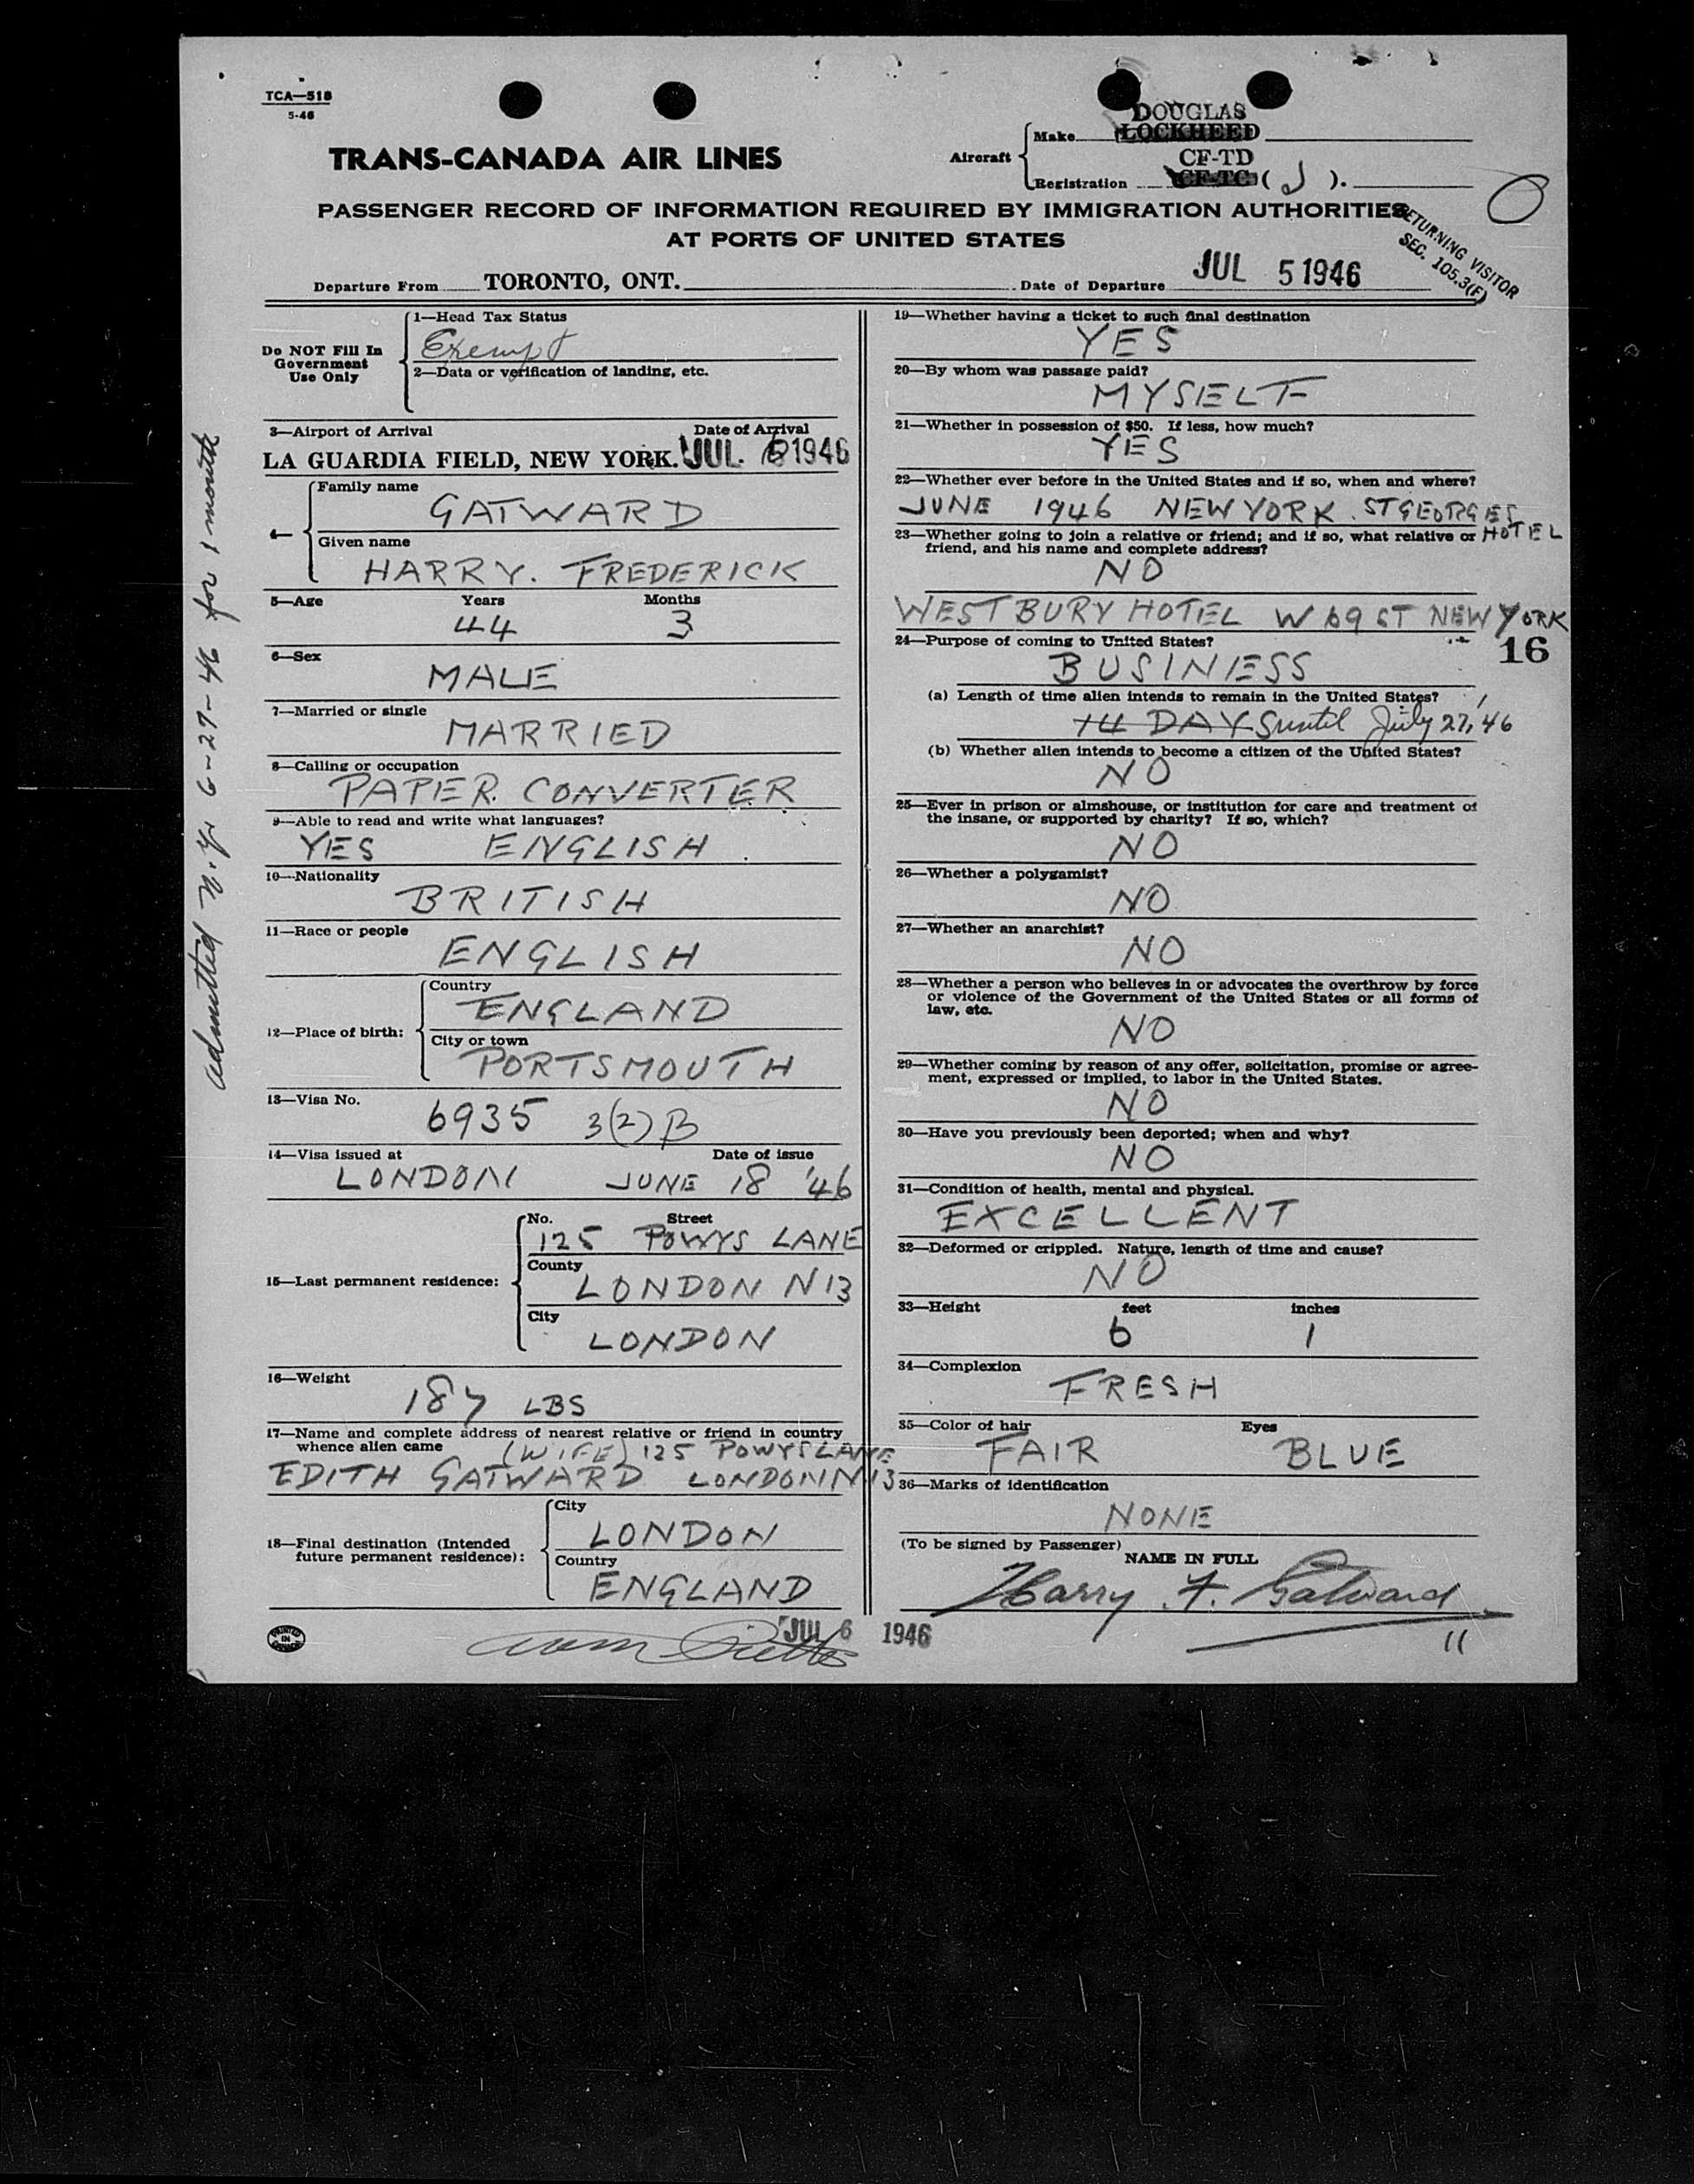 TCA—518
5-46
TRANS-CANADA AIR LINES
Aircraft
Make DOUGLAS
LOCKHEED
CF-TD
Registration CF-TC ( J ).
PASSENGER RECORD OF INFORMATION REQUIRED BY IMMIGRATION AUTHORITIES
AT PORTS OF UNITED STATES
RETURNING VISITOR
SEC. 105.3(F)
Departure From TORONTO, ONT. Date of Departure JUL 5 1946
Do NOT Fill In
Government
Use Only
1—Head Tax Status
Exempt
2—Data or verification of landing, etc.
3—Airport of Arrival Date of Arrival
LA GUARDIA FIELD, NEW YORK. JUL. 6 1946
4—
Family name
GATWARD
Given name
HARRY. FREDERICK
5—Age Years Months
44 3
6—Sex
MALE
7—Married or single
MARRIED
8—Calling or occupation
PAPER. CONVERTER
9—Able to read and write what languages?
YES ENGLISH
10—Nationality
BRITISH
11—Race or people
ENGLISH
12—Place of birth:
Country
ENGLAND
City or town
PORTSMOUTH
13—Visa No.
6935 3(2)B
14—Visa issued at Date of issue
LONDON JUNE 18 '46
15—Last permanent residence:
No. Street
125 POWYS LANE
County
LONDON N13
City
LONDON
16—Weight
187 LBS
17—Name and complete address of nearest relative or friend in country
whence alien came
(WIFE) 125 POWYS LANE
EDITH GATWARD LONDON N13
18—Final destination (Intended
future permanent residence):
City
LONDON
Country
ENGLAND
PRINTED
IN
CANADA
JUL 6 1946
admitted N.Y. 6-27-46 for 1 month
19—Whether having a ticket to such final destination
YES
20—By whom was passage paid?
MYSELF
21—Whether in possession of $50. If less, how much?
YES
22—Whether ever before in the United States and if so, when and where?
JUNE 1946 NEW YORK. ST GEORGES
HOTEL
23—Whether going to join a relative or friend; and if so, what relative or
friend, and his name and complete address?
NO
WESTBURY HOTEL W 69 ST NEW YORK
16
24—Purpose of coming to United States?
BUSINESS
(a) Length of time alien intends to remain in the United States?
14 DAYS until July 27, '46
(b) Whether alien intends to become a citizen of the United States?
NO
25—Ever in prison or almshouse, or institution for care and treatment of
the insane, or supported by charity? If so, which?
NO
26—Whether a polygamist?
NO
27—Whether an anarchist?
NO
28—Whether a person who believes in or advocates the overthrow by force
or violence of the Government of the United States or all forms of
law, etc.
NO
29—Whether coming by reason of any offer, solicitation, promise or agree-
ment, expressed or implied, to labor in the United States.
NO
30—Have you previously been deported; when and why?
NO
31—Condition of health, mental and physical.
EXCELLENT
32—Deformed or crippled. Nature, length of time and cause?
NO
33—Height feet inches
6 1
34—Complexion
FRESH
35—Color of hair Eyes
FAIR BLUE
36—Marks of identification
NONE
(To be signed by Passenger)
NAME IN FULL
Harry F. Gatward
11